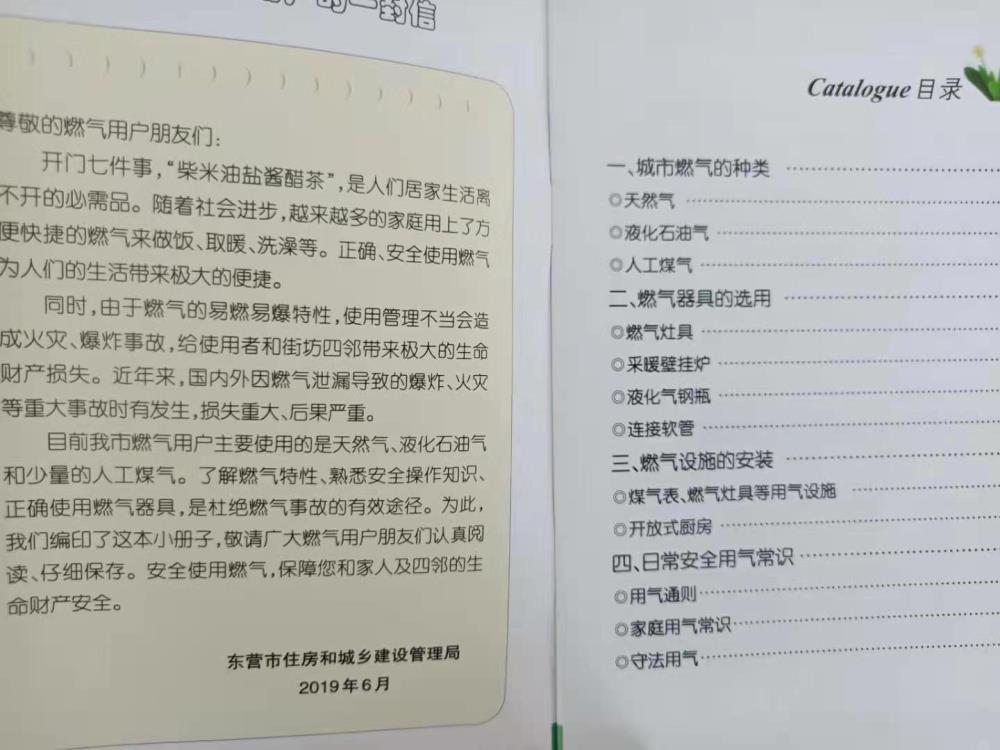 的一封信
尊敬的燃气用户朋友们：
开门七件事，“柴米油盐酱醋茶”，是人们居家生活离
不开的必需品。随着社会进步，越来越多的家庭用上了方
便快捷的燃气来做饭、取暖、洗澡等。正确、安全使用燃气
为人们的生活带来极大的便捷。
同时，由于燃气的易燃易爆特性，使用管理不当会造
成火灾、爆炸事故，给使用者和街坊四邻带来极大的生命
财产损失。近年来，国内外因燃气泄漏导致的爆炸、火灾
等重大事故时有发生，损失重大、后果严重。
目前我市燃气用户主要使用的是天然气、液化石油气
和少量的人工煤气。了解燃气特性、熟悉安全操作知识、
正确使用燃气器具，是杜绝燃气事故的有效途径。为此，
我们编印了这本小册子，敬请广大燃气用户朋友们认真阅
读、仔细保存。安全使用燃气，保障您和家人及四邻的生
命财产安全。
东营市住房和城乡建设管理局
2019年6月
Catalogue 目录
一、城市燃气的种类
◎天然气
◎液化石油气
◎人工煤气
二、燃气器具的选用
◎燃气灶具
◎采暖壁挂炉
◎液化气钢瓶
◎连接软管
三、燃气设施的安装
◎煤气表、燃气灶具等用气设施
◎开放式厨房
四、日常安全用气常识
◎用气通则
◎家庭用气常识
◎守法用气